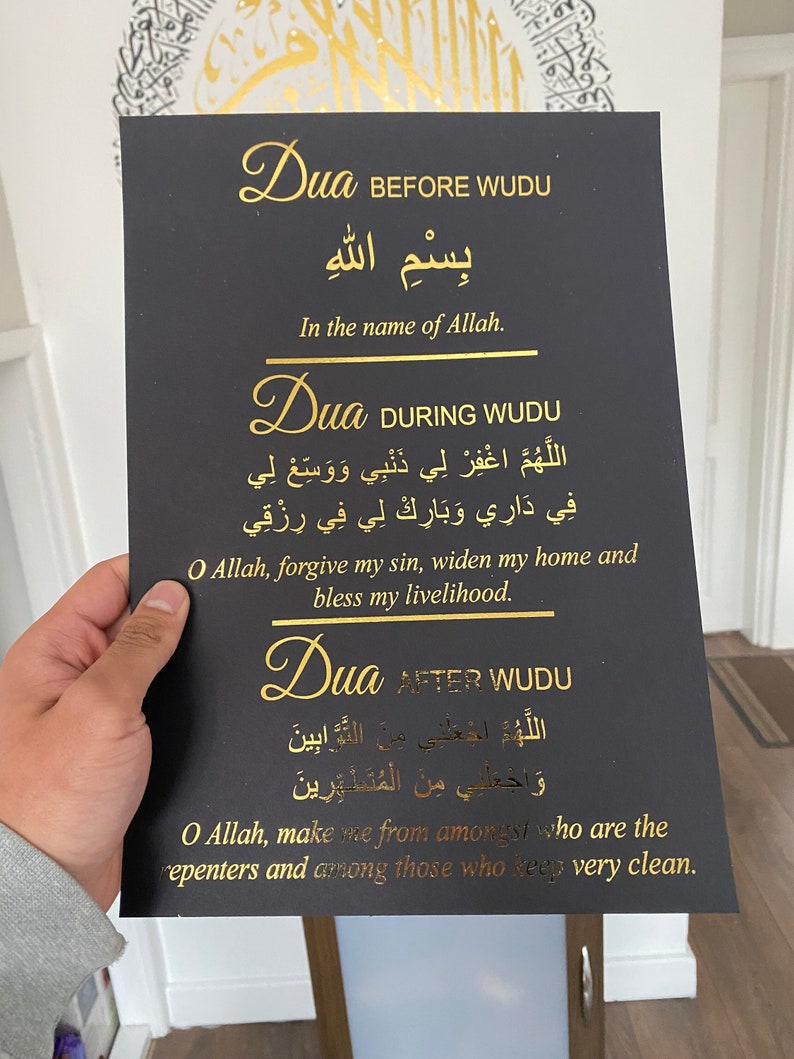 Dua BEFORE WUDU
بِسْمِ اللهِ
In the name of Allah.
Dua DURING WUDU
اللَّهُمَّ اغْفِرْ لِي ذَنْبِي وَوَسِّعْ لِي
فِي دَارِي وَبَارِكْ لِي فِي رِزْقِي
O Allah, forgive my sin, widen my home and
bless my livelihood.
Dua AFTER WUDU
اللَّهُمَّ اجْعَلْنِي مِنَ التَّوَّابِينَ
وَاجْعَلْنِي مِنَ الْمُتَطَهِّرِينَ
O Allah, make me from amongst who are the
repenters and among those who keep very clean.